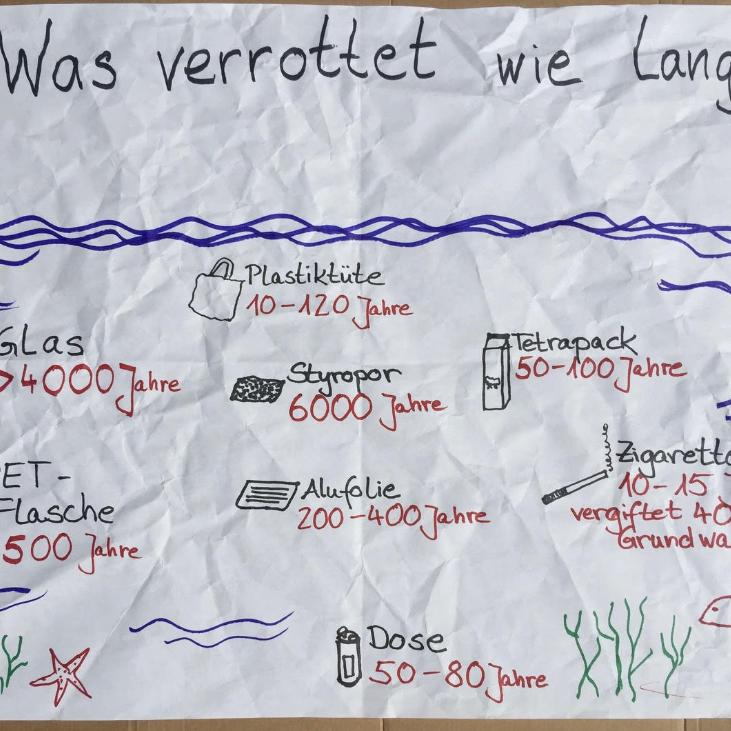 Was verrottet wie lang
Plastiktüte
10-120 Jahre
Glas
>4000 Jahre
Styropor
6000 Jahre
Tetrapack
50-100 Jahre
ET-
Flasche
500 Jahre
Alufolie
200-400 Jahre
Zigarette
10-15
vergiftet 40
Grundwa
Dose
50-80 Jahre